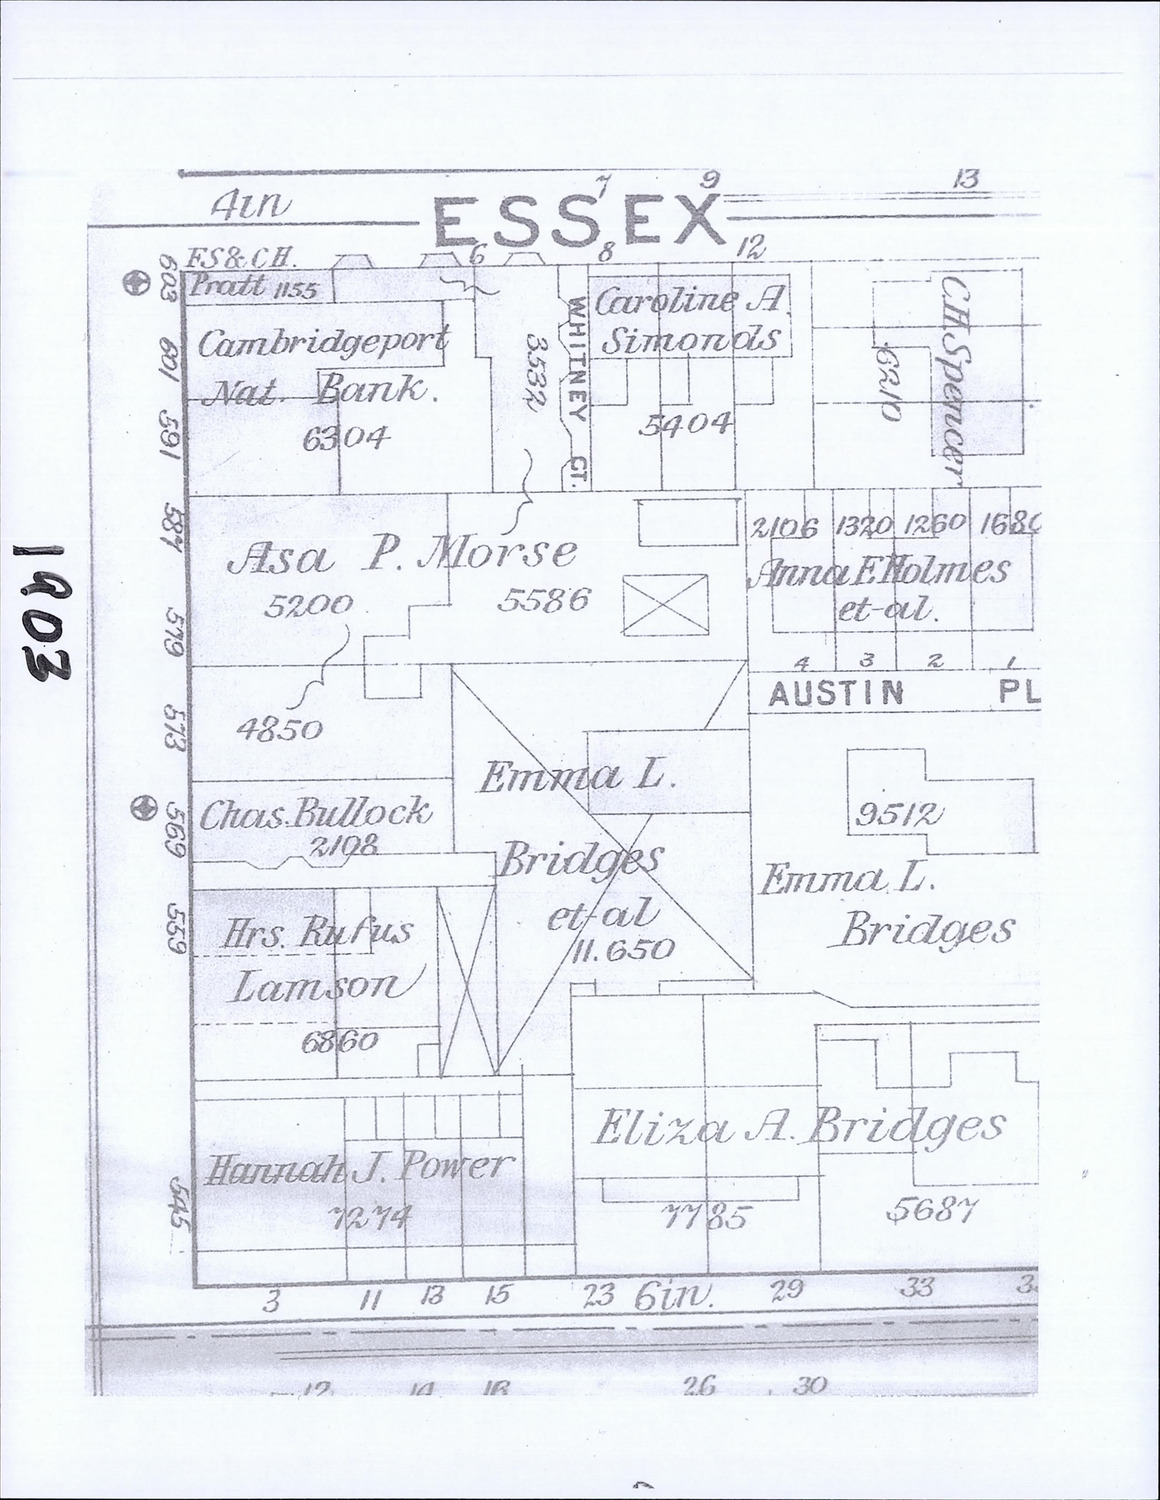 7 9 13
4in
ESSEX
6 8 12
F.S.& C.H.
Pratt 1155
603
Cambridgeport
Nat. Bank.
6304
601
591
3532
WHITNEY CT.
Caroline A.
Simonds
5404
C.H. Spencer
6210
587
Asa P. Morse
5200 5586
579
2106 1320 1260 1680
Anna E. Holmes
et-al.
4 3 2 1
AUSTIN PL
573
4850
569
Chas. Bullock
2198
Emma L.
Bridges
et-al
11.650
9512
Emma L.
Bridges
559
Hrs. Rufus
Lamson
6860
1903
Eliza A. Bridges
7785 5687
Hannah J. Power
7274
545
3 11 13 15 23 6in. 29 33
12 14 16 26 30